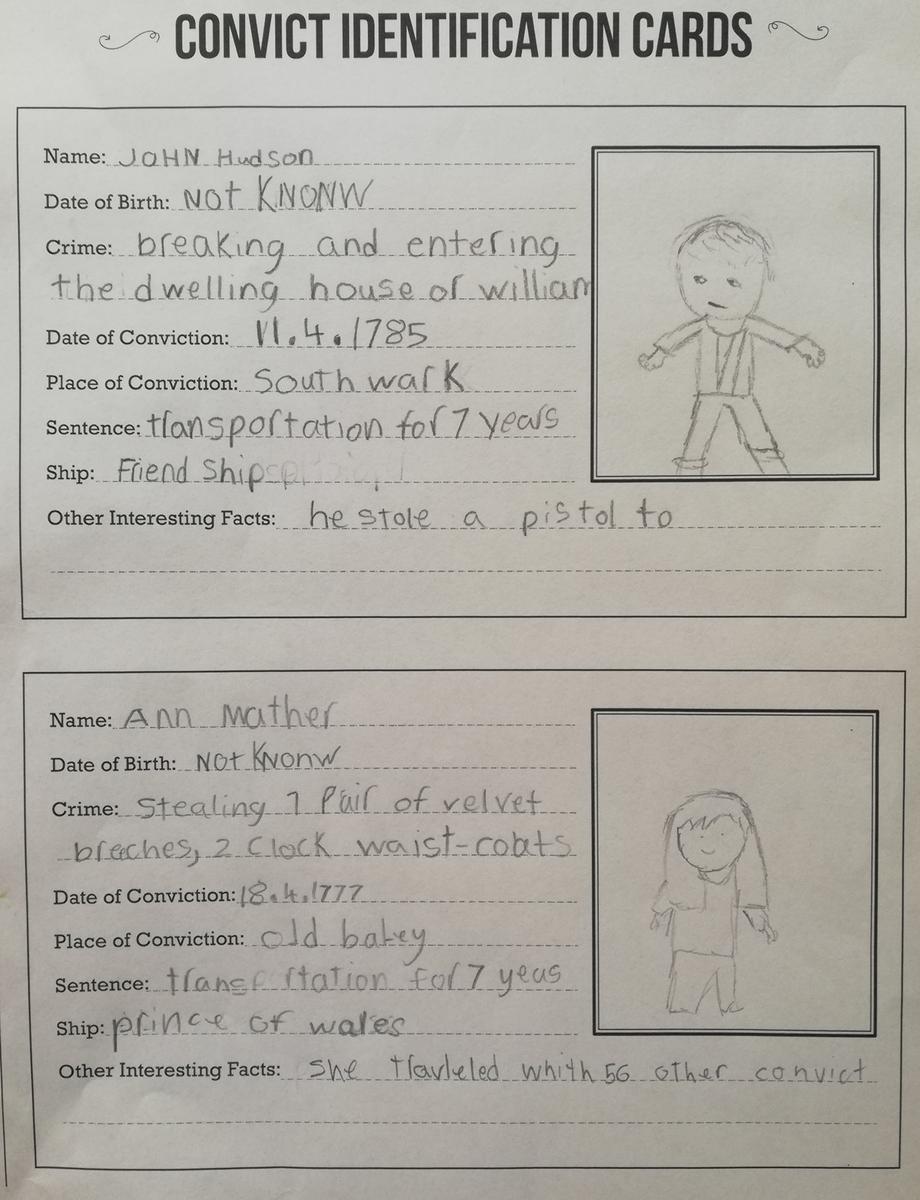 CONVICT IDENTIFICATION CARDS
Name: JOHN Hudson
Date of Birth: Not KNONW
Crime: breaking and entering
the dwelling house of william
Date of Conviction: 11.4.1785
Place of Conviction: Southwark
Sentence: transportation for 7 years
Ship: Friend Ship
Other Interesting Facts: he stole a pistol to
Name: Ann Mather
Date of Birth: Not Knonw
Crime: Stealing 1 Pair of velvet
breches, 2 Clock waist-coats
Date of Conviction: 18.4.1777
Place of Conviction: old baley
Sentence: transportation for 7 yeas
Ship: prince of wales
Other Interesting Facts: she travleled whith 56 other convict